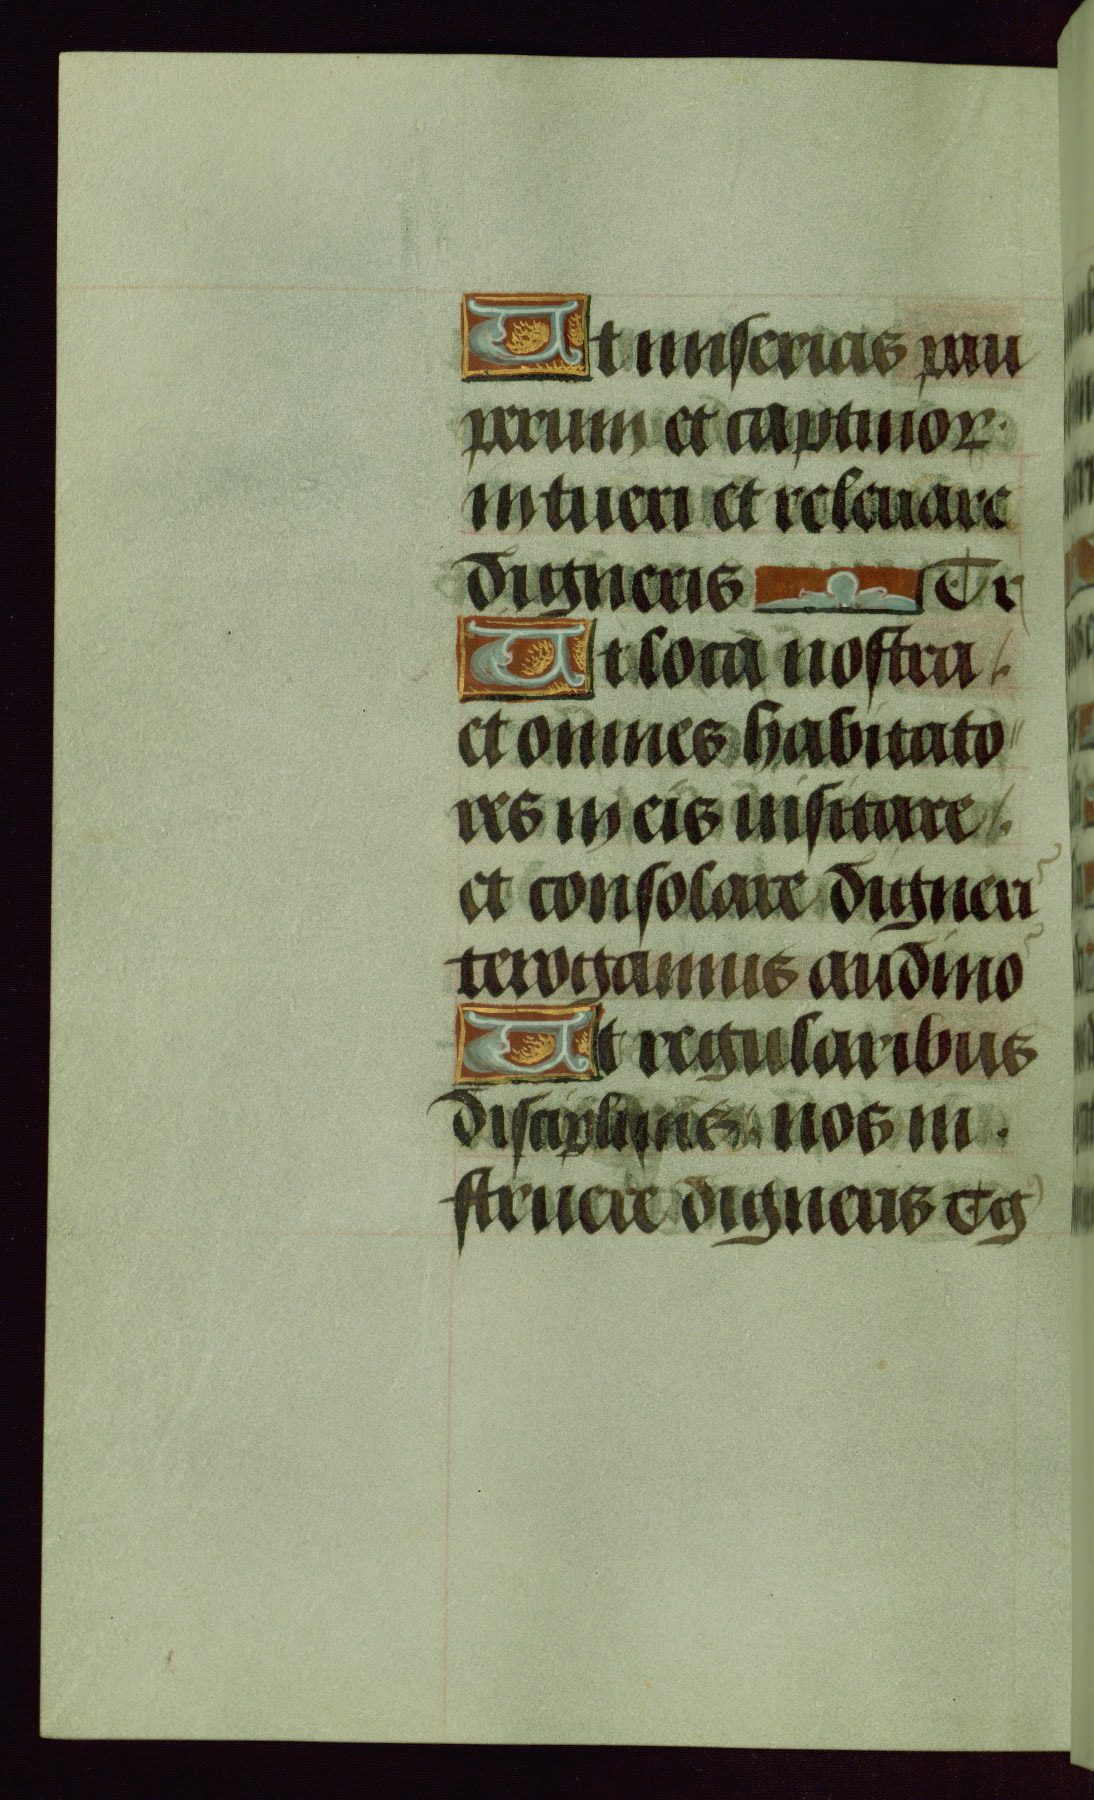 Ut miserias pau
perum et captiuoꝝ
intueri et releuare
digneris Te r
Ut loca nostra
et omnes habitato
res in eis uisitare
et consolare digneri
te rogamus audi no
Ut regularibus
disciplinis nos in
struere digneris Te g